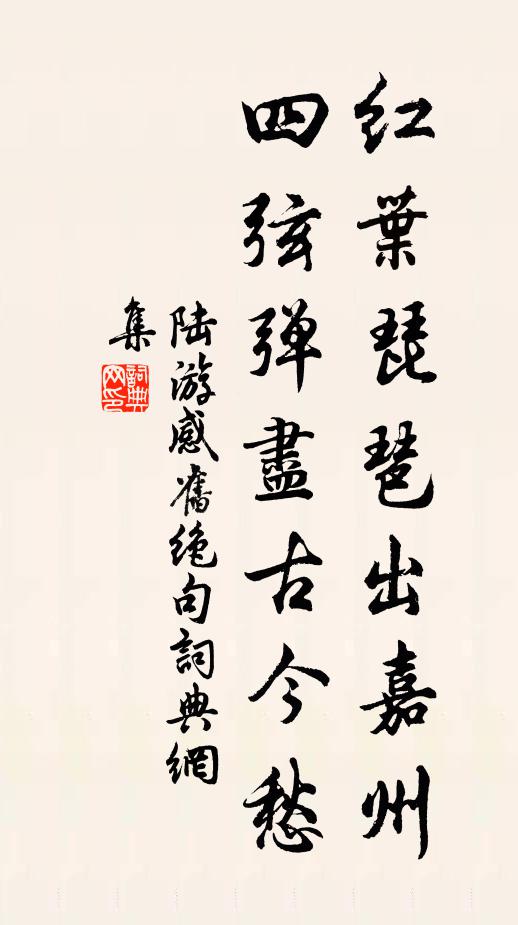 红葉琵琶出嘉州
四弦弹盡古今愁
陆游感舊绝句詞典網
集
詞典
网印